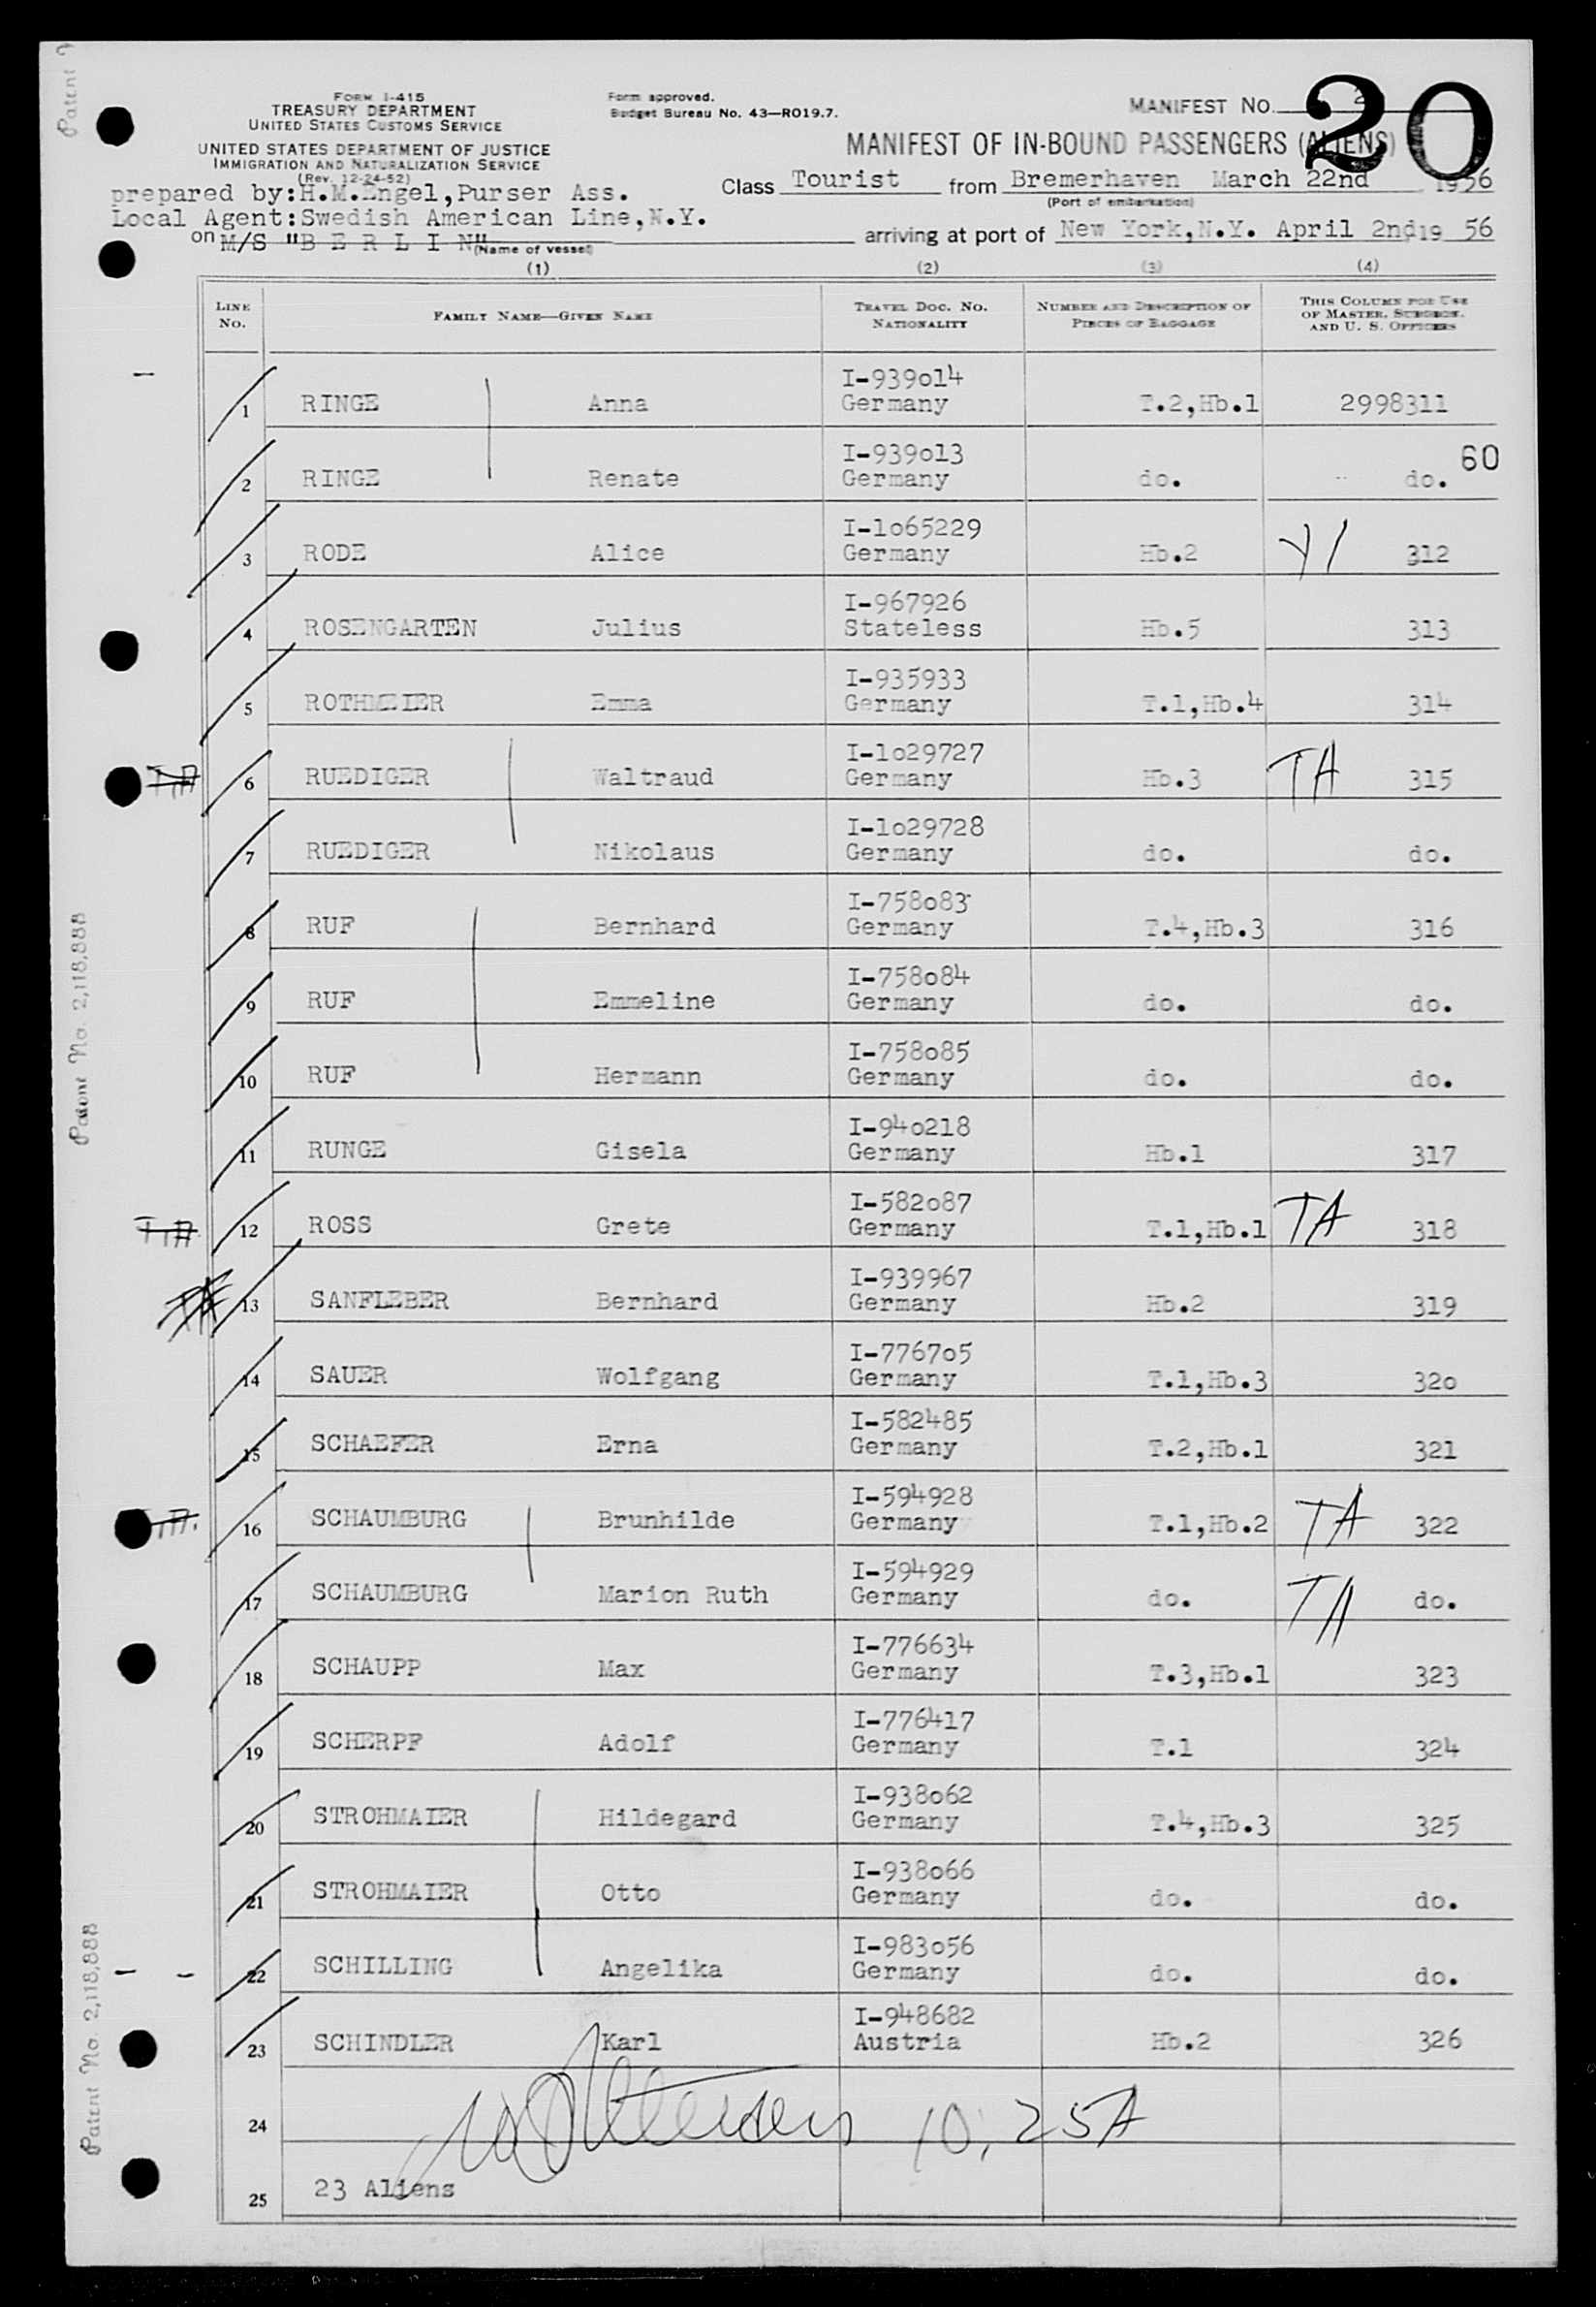 FORM I-415
TREASURY DEPARTMENT
UNITED STATES CUSTOMS SERVICE
UNITED STATES DEPARTMENT OF JUSTICE
IMMIGRATION AND NATURALIZATION SERVICE
(Rev. 12-24-52)
Form approved.
Budget Bureau No. 43—R019.7.
MANIFEST NO. 20
MANIFEST OF IN-BOUND PASSENGERS (ALIENS)
prepared by:H.M.Engel,Purser Ass.
Class Tourist from Bremerhaven March 22nd 1956
(Port of embarkation)
Local Agent:Swedish American Line,N.Y.
on M/S "B E R L I N" (Name of vessel)
arriving at port of New York,N.Y. April 2nd, 19 56
(1) (2) (3) (4)
LINE NO. FAMILY NAME—GIVEN NAME TRAVEL DOC. NO. NATIONALITY NUMBER AND DESCRIPTION OF PIECES OF BAGGAGE THIS COLUMN FOR USE OF MASTER, SURGEON, AND U. S. OFFICERS
I-939o14
1 RINGE Anna Germany T.2,Hb.1 2998311
I-939o13 60
2 RINGE Renate Germany do. do.
I-1o65229
3 RODE Alice Germany Hb.2 312
I-967926
4 ROSENGARTEN Julius Stateless Hb.5 313
I-935933
5 ROTHMEIER Emma Germany T.1,Hb.4 314
I-1o29727
TA 6 RUEDIGER Waltraud Germany Hb.3 TA 315
I-1o29728
7 RUEDIGER Nikolaus Germany do. do.
I-758o83
8 RUF Bernhard Germany T.4,Hb.3 316
I-758o84
9 RUF Emmeline Germany do. do.
I-758o85
10 RUF Hermann Germany do. do.
I-94o218
11 RUNGE Gisela Germany Hb.1 317
I-582o87
TA 12 ROSS Grete Germany T.1,Hb.1 TA 318
I-939967
TA 13 SANFLEBER Bernhard Germany Hb.2 319
I-7767o5
14 SAUER Wolfgang Germany T.1,Hb.3 32o
I-582485
15 SCHAEFER Erna Germany T.2,Hb.1 321
I-594928
TA. 16 SCHAUMBURG Brunhilde Germany T.1,Hb.2 TA 322
I-594929
17 SCHAUMBURG Marion Ruth Germany do. TA do.
I-776634
18 SCHAUPP Max Germany T.3,Hb.1 323
I-776417
19 SCHERPF Adolf Germany T.1 324
I-938o62
20 STROHMAIER Hildegard Germany T.4,Hb.3 325
I-938o66
21 STROHMAIER Otto Germany do. do.
I-983o56
22 SCHILLING Angelika Germany do. do.
I-948682
23 SCHINDLER Karl Austria Hb.2 326
24 10:25A
25 23 Aliens
Patent No. 2,118,888
Patent No. 2,118,888